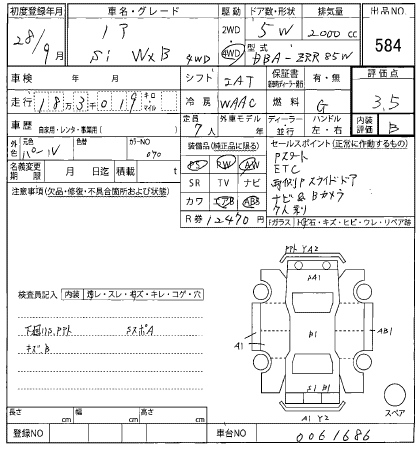 初度登録年月 車名・グレード 駆動 ドア数・形状 排気量 出品NO
28/9月 Si WxB 4WD 2WD 4WD 5W 2000cc 584
型式 DBA-ZRR85W
車検 年 月 シフト IAT 保証書 有・無 評価点
走行 18万3千019 キロ マイル 冷房 WAAC 燃料 G 3.5
車歴 自家用・レンタ・事業用( ) 定員 7人 外車モデル 年 ディーラー 並行 ハンドル 左・右 内装評価 B
元色 パールV 色替 カラーNO 070
装備品(純正品に限る) セールスポイント(正常に作動するもの)
名義変更期限 月 日迄 積載量 t
PS PW AW
SR TV ナビ
カワ エアB ABS
R券 12470円
Pスタート
ETC
両側Pスライドドア
ナビ&Bカメラ
7人乗り
注意事項(欠品・修復・不具合箇所および状態)
Fガラス 石・キズ・ヒビ・ウレ・リペア跡
PPト YA2
SA1
検査員記入 内装 コゲ・穴
下廻りS PPト SスポA
キズB
A1 B1 AB1
S1 B1
A1 Y2
スペア
長さ cm 幅 cm 高さ cm
登録NO 車台NO 0061686